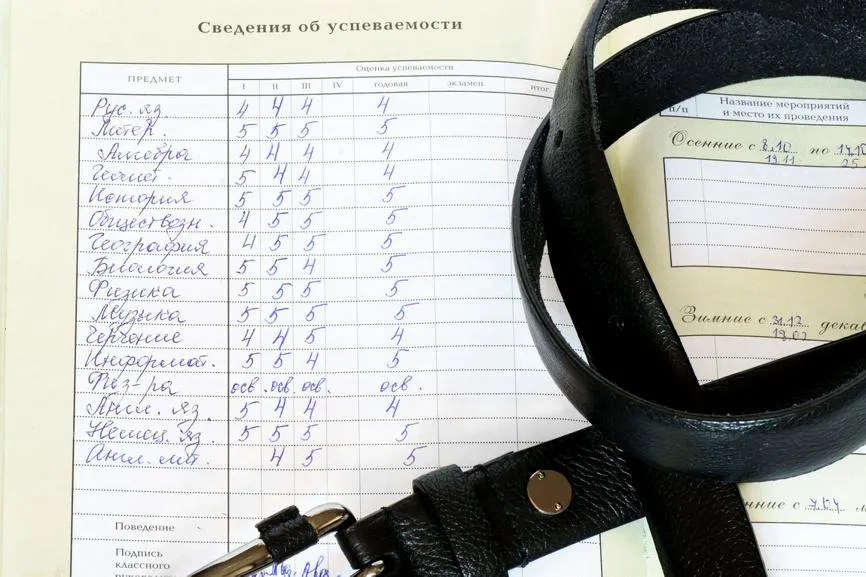 Сведения об успеваемости
ПРЕДМЕТ
Оценка успеваемости
I II III IV годовая экзамен. итог.
Рус. яз. 4 4 4 4
Литер. 5 5 5 5
Алгебра 4 4 4 4
Геомет. 5 4 4 4
История 5 5 5 5
Обществозн. 4 5 5 5
География 4 5 5 5
Биология 5 5 4 5
Физика 5 5 5 5
Музыка 5 5 5 5
Черчение 4 4 5 4
Информат. 5 5 4 5
Физ-ра осв. осв. осв. осв.
Англ. яз. 5 4 4 4
Немец. яз. 5 5 5 5
Англ. лит. 4 5 5
Поведение
Подпись
классного
п/п
Название мероприятий
и место их проведения
Осенние с 8.10 по
19.11 25
Зимние с 31.12 декаб
с 7.04